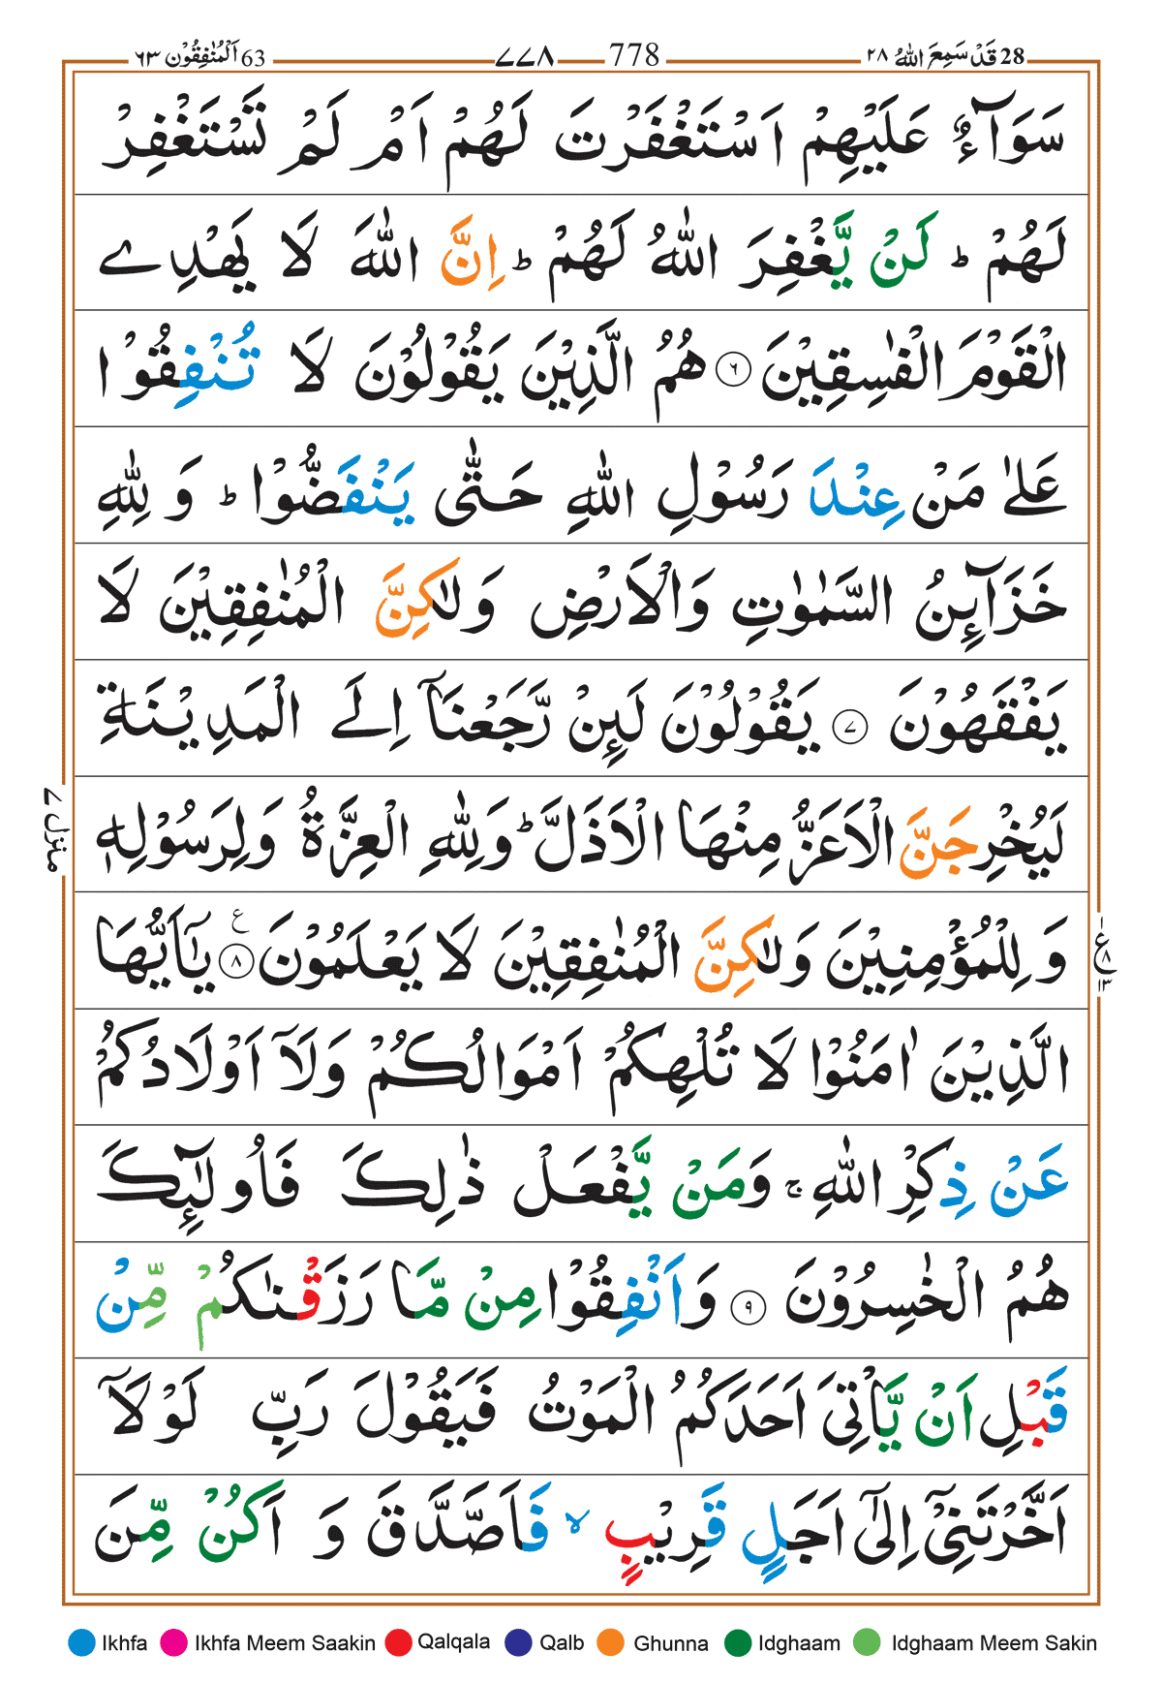 28 قَدْ سَمِعَ اللّٰهُ ٢٨
778 ٧٧٨
63 اَلْمُنٰفِقُوْن ٦٣
سَوَآءٌ عَلَيْهِمْ اَسْتَغْفَرْتَ لَهُمْ اَمْ لَمْ تَسْتَغْفِرْ
لَهُمْ ؕ لَنْ يَّغْفِرَ اللّٰهُ لَهُمْ ؕ اِنَّ اللّٰهَ لَا يَهْدِے
الْقَوْمَ الْفٰسِقِيْنَ ۶ هُمُ الَّذِيْنَ يَقُوْلُوْنَ لَا تُنْفِقُوْا
عَلٰے مَنْ عِنْدَ رَسُوْلِ اللّٰهِ حَتّٰى يَنْفَضُّوْا ؕ وَ لِلّٰهِ
خَزَآئِنُ السَّمٰوٰتِ وَالْاَرْضِ وَلٰكِنَّ الْمُنٰفِقِيْنَ لَا
يَفْقَهُوْنَ ۷ يَقُوْلُوْنَ لَئِنْ رَّجَعْنَاۤ اِلَے الْمَدِيْنَةِ
لَيُخْرِجَنَّ الْاَعَزُّ مِنْهَا الْاَذَلَّ ؕ وَلِلّٰهِ الْعِزَّةُ وَلِرَسُوْلِهٖ
وَ لِلْمُؤْمِنِيْنَ وَلٰكِنَّ الْمُنٰفِقِيْنَ لَا يَعْلَمُوْنَ ۸ ع يٰۤاَيُّهَا
الَّذِيْنَ اٰمَنُوْا لَا تُلْهِكُمْ اَمْوَالُكُمْ وَلَاۤ اَوْلَادُكُمْ
عَنْ ذِكْرِ اللّٰهِ ۚ وَمَنْ يَّفْعَلْ ذٰلِكَ فَاُولٰٓئِكَ
هُمُ الْخٰسِرُوْنَ ۹ وَاَنْفِقُوْا مِنْ مَّا رَزَقْنٰكُمْ مِّنْ
قَبْلِ اَنْ يَّاْتِىَ اَحَدَكُمُ الْمَوْتُ فَيَقُوْلَ رَبِّ لَوْلَاۤ
اَخَّرْتَنِىْۤ اِلٰٓى اَجَلٍ قَرِيْبٍ ۙ فَاَصَّدَّقَ وَ اَكُنْ مِّنَ
منزل ۷
ع ۸ ١٣
Ikhfa Ikhfa Meem Saakin Qalqala Qalb Ghunna Idghaam Idghaam Meem Sakin